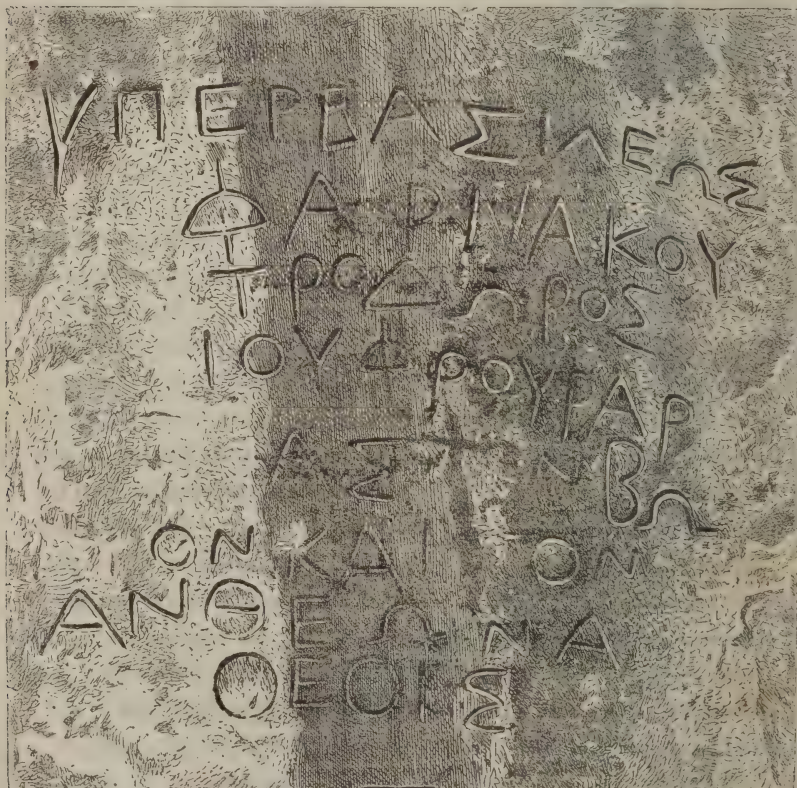 ΥΠΕΡΒΑΣΙΛΕΩΣ
ΦΑΡΝΑΚΟΥ
ΤΡΟΔΩΡΟΣ
ΙΟΥΦΡΟΥΡΑΡ
ΑΣΤ ΝΒΩ
ΟΝ ΚΑΙ ΟΝ
ΑΝΘΕΩΝΑ
ΘΕΟΙΣ